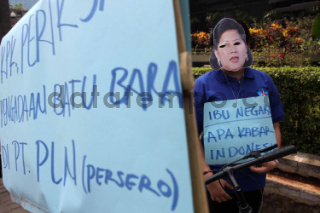 KPK PERIKSA
PENGADAAN BATU BARA
DI PT. PLN (PERSERO)
IBU NEGARA
APA KABAR
INDONESI